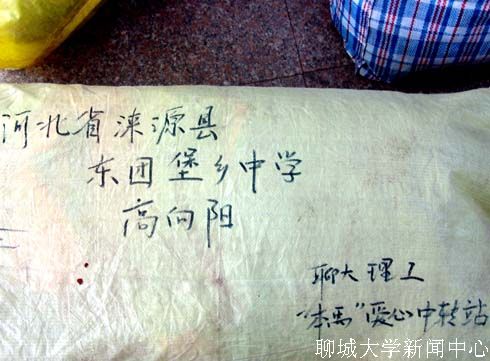 河北省涞源县
东团堡乡中学
高向阳
聊大理工
"本禹"爱心中转站
聊城大学新闻中心